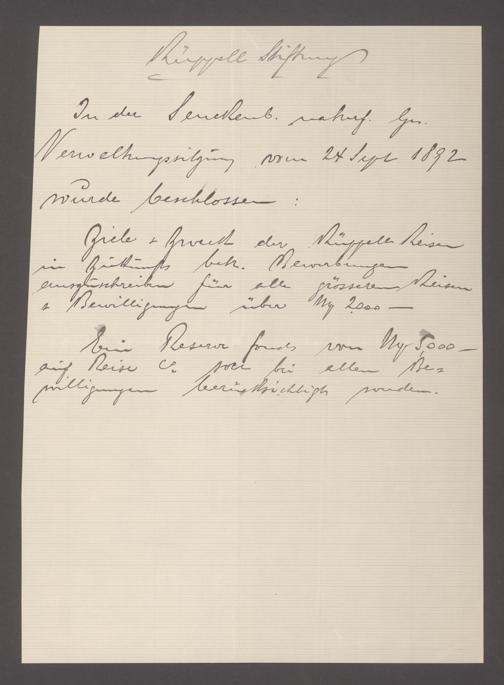 Rüppell Stiftung
In der Senckenb. naturf. Ges.
Verwaltungssitzung vom 24 Sept 1892
wurde beschlossen :
Ziele & Zweck der Rüppell Reisen
in Zukunft betr. Bewerbungen
auszuschreiben für alle grösseren Reisen
& Bewilligungen über M 2000 —
Ein Reserve fonds von M 5000 —
auf Reise soll bei allen Be=
willigungen berücksichtigt werden.